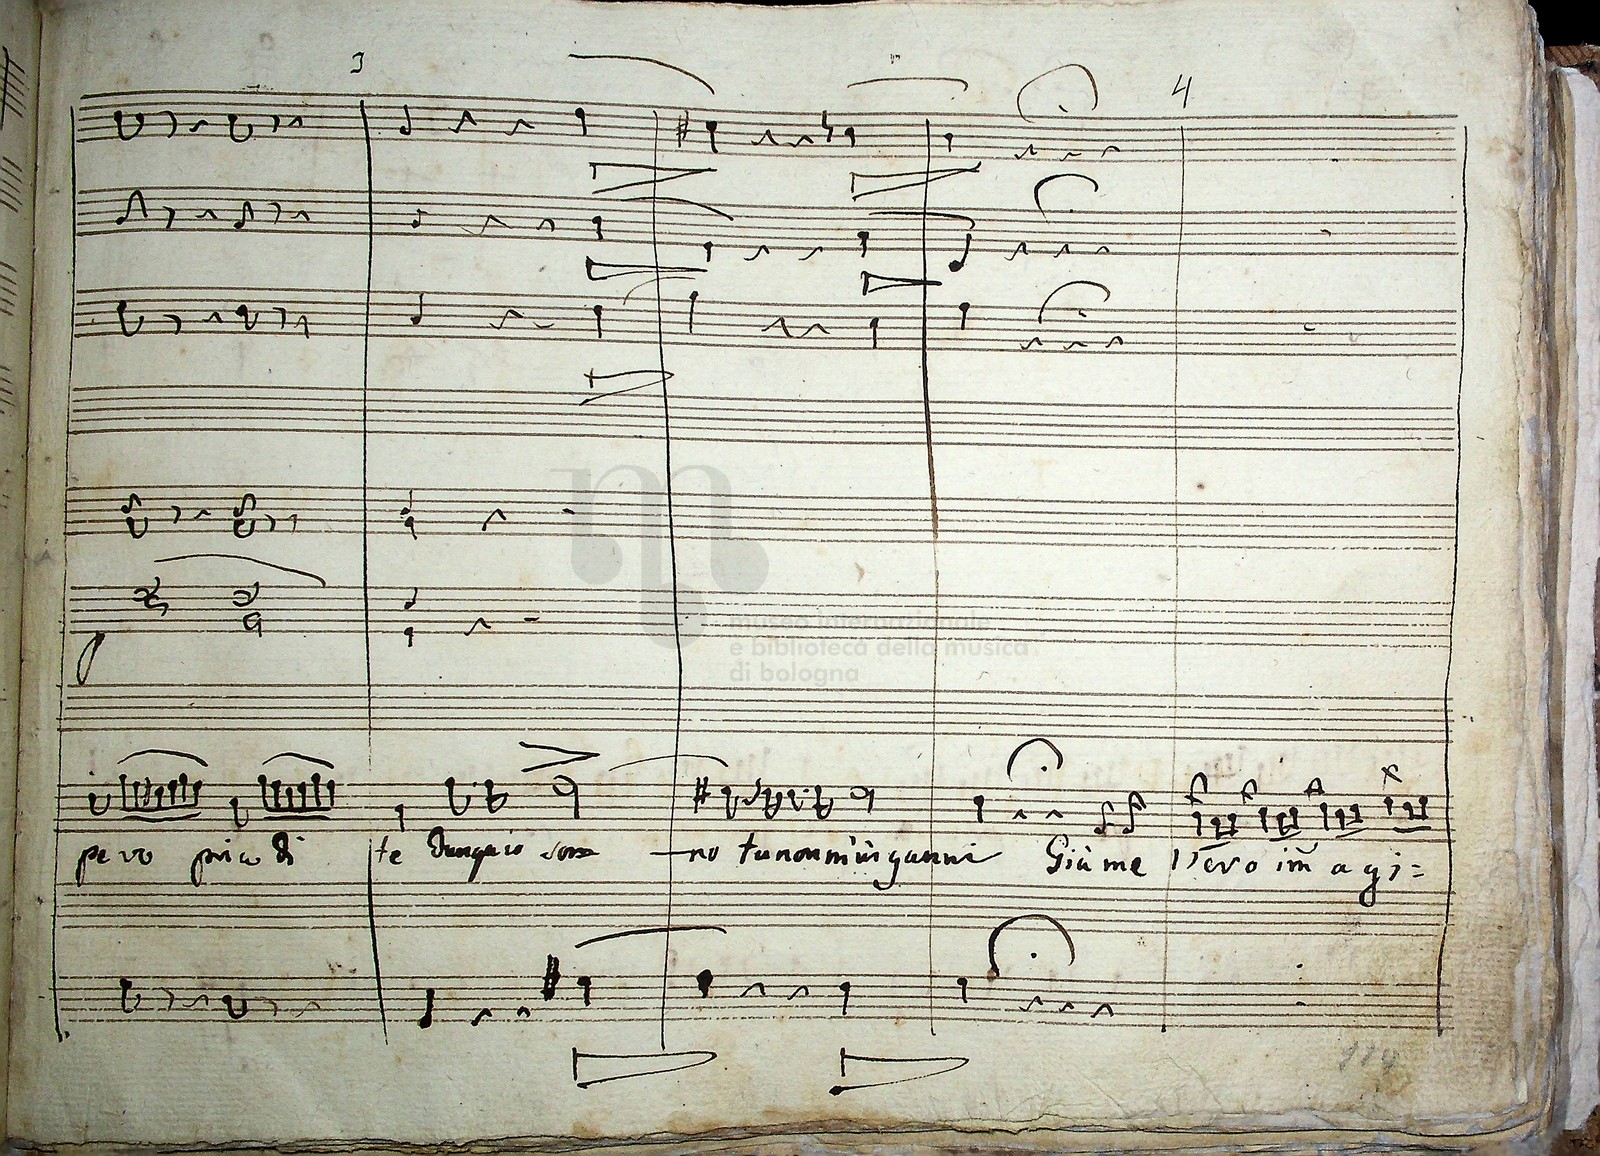 3
4
museo internazionale
e biblioteca della musica
di bologna
pe ro pria di te Dunque io sono —no tu non m'inganni Già me l'ero im a gi=
114